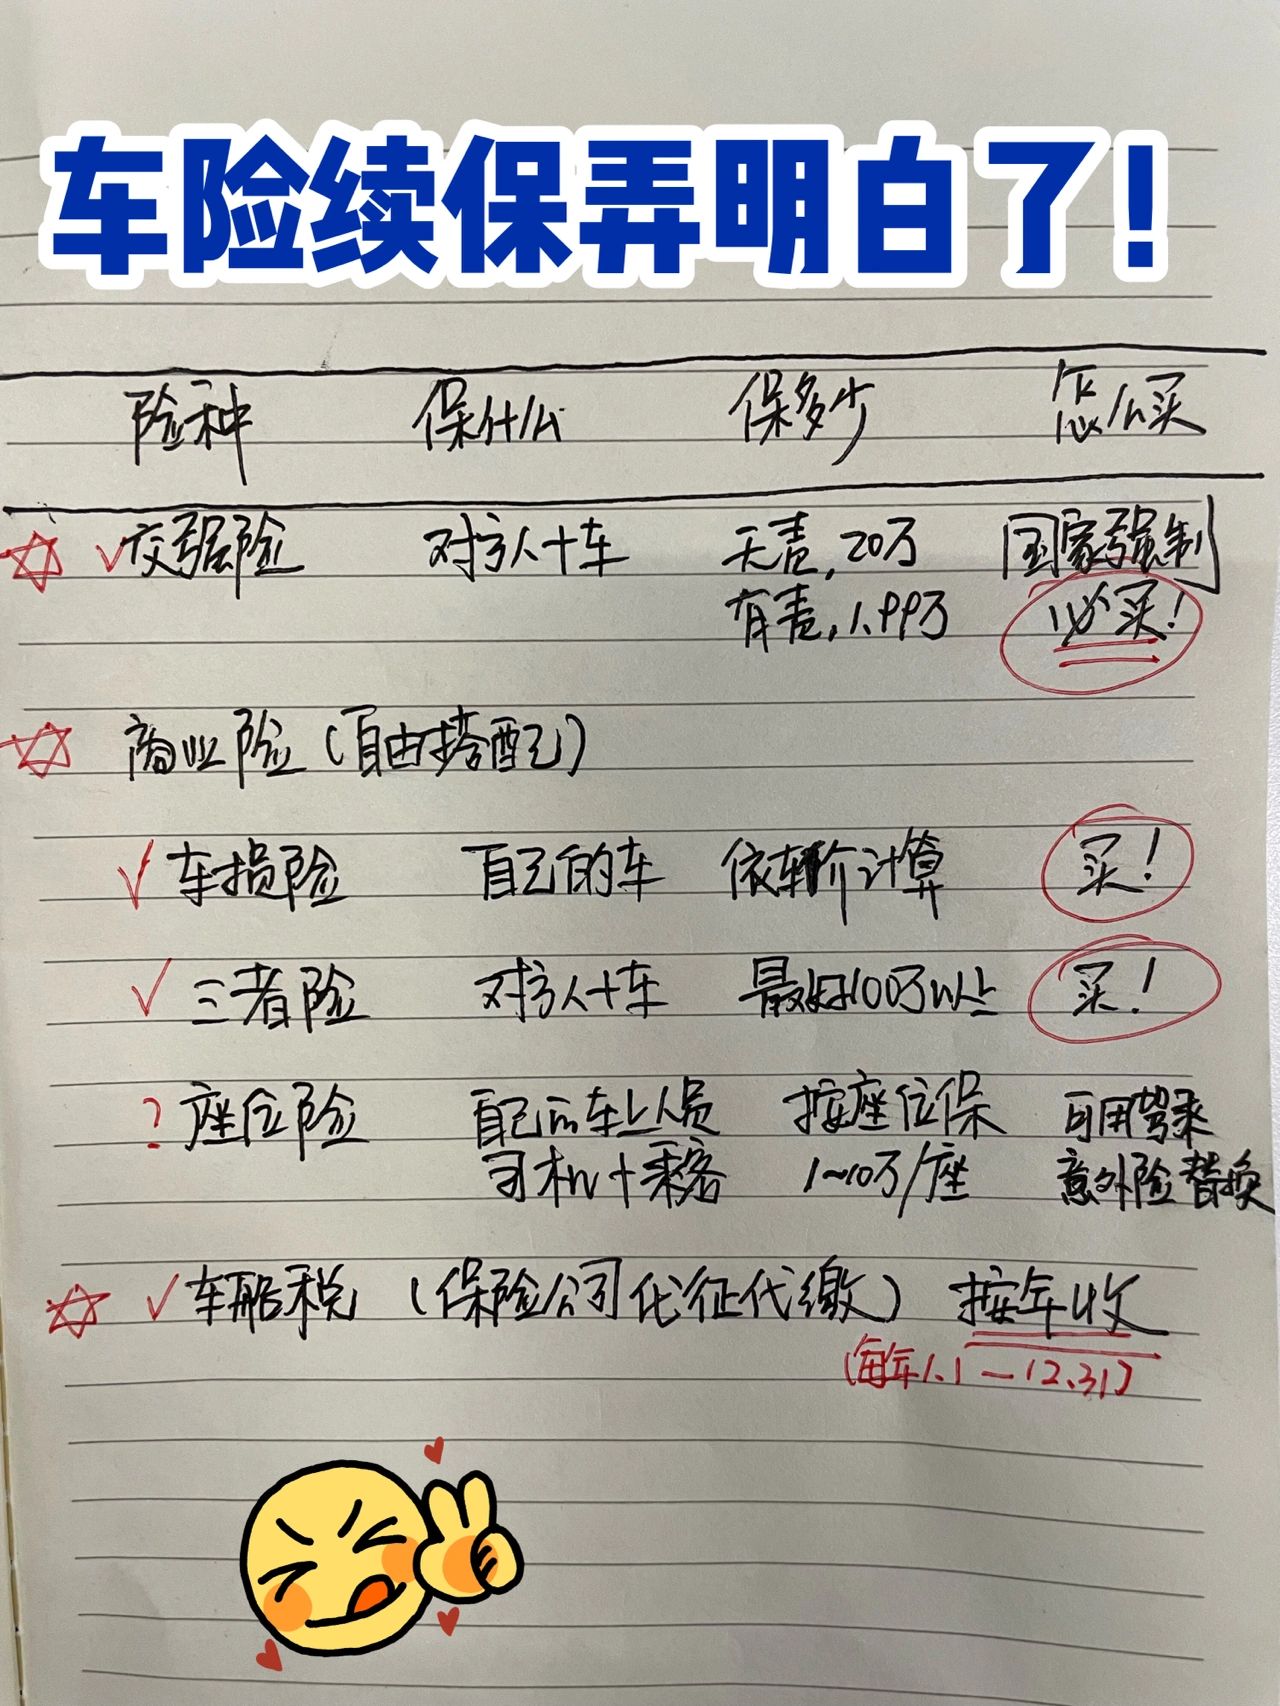 车险续保弄明白了!
险种 保什么 保多少 怎么买
交强险 对方人+车 无责,20万 国家强制
有责,1.99万 必买!
商业险(自由搭配)
车损险 自己的车 依车价计算 买!
三者险 对方人+车 最好100万以上 买!
? 座位险 自己的车上人员 按座位保 可用驾乘
司机+乘客 1~10万/座 意外险替换
车船税(保险公司代征代缴) 按年收
(每年1.1—12.31)